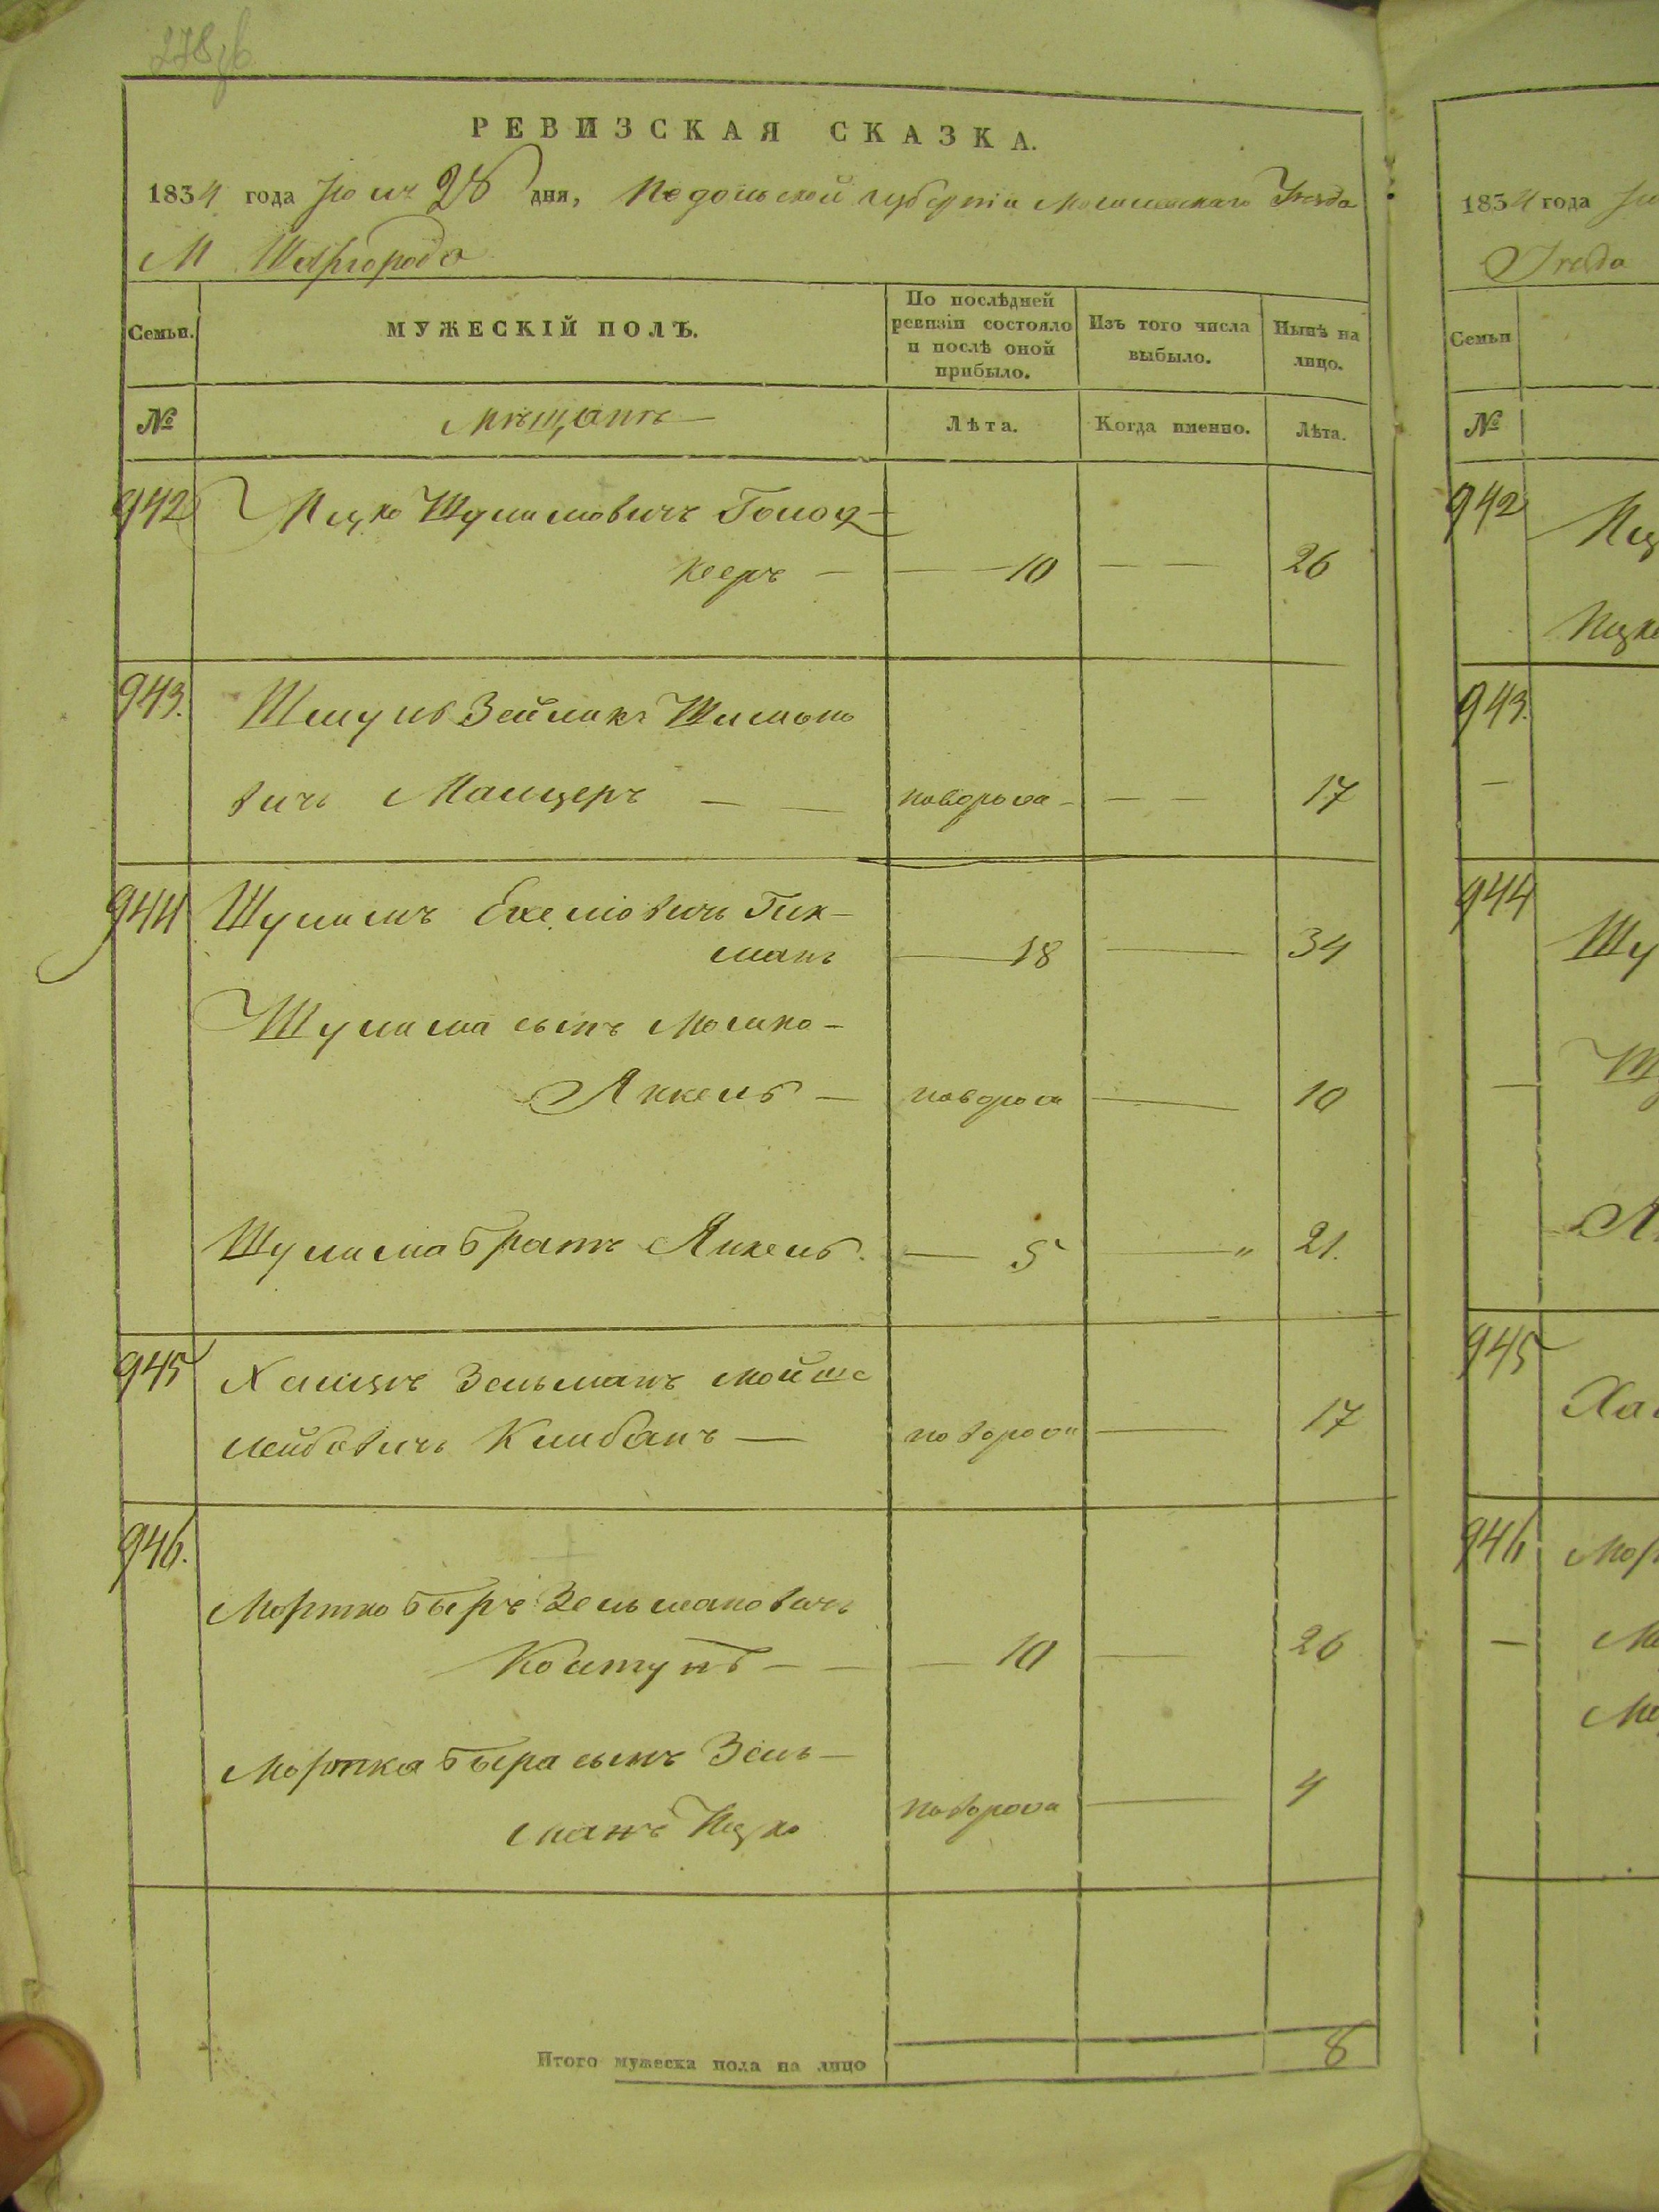 278 об
РЕВИЗСКАЯ СКАЗКА.
1834 года Июля 28 дня, Подольской губерніи Могилевскаго Уезда
М Шаргорода
Семьи.
МУЖЕСКІЙ ПОЛЪ.
По послѣдней ревизіи состояло и послѣ оной прибыло.
Изъ того числа выбыло.
Нынѣ на лицо.
№
Мѣщанъ
Лѣта.
Когда именно.
Лѣта.
942 Ицко Шулимовичъ
керъ — 10 — — 26
943. Шмуль Зейликъ Шимоно
вичъ — — новорож — — — 17
944 Шулимъ
манъ — 18 — 34
Шулима сынъ Мошко-
Янкель — новорож — 10
Шулима братъ Янкель. — 5 — " 21.
945 Хаимъ Зельманъ Мойше
Лейбовичъ — новорож — 17
946. Мортко Беръ Зельмановичъ
Колтунъ — — 10 — 26
Мортка Бера сынъ Зель-
манъ Ицко новорож — 4
Итого мужеска пола на лицо 8
1834 года
Уезда
Семьи
№
942
Ицко
943.
944
Шу
945
946